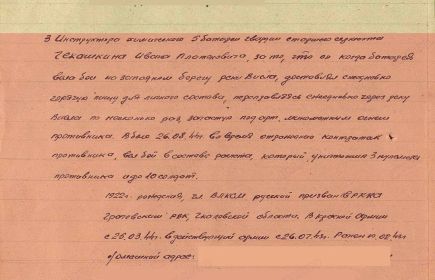 3 Инструктора химического 5 батареи гвардии старшего сержанта
Чекашкина Ивана Платоновича, за то, что он когда батарея
вела бои на западном берегу реки Висла, доставлял ежедневно
горячую пищу для личного состава, переправляясь ежедневно через реку
Висла по несколько раз, зачастую под арт, минометным огнем
противника. В бою 26.08.44г. во время отражения контратак
противника, вел бой в составе расчета, который уничтожил 3 пулемета
противника и до 10 солдат.
1922г. рождения, чл ВЛКСМ русский призван в РККА
РВК, Чкаловской области. В красной армии
с 26.03.44г. в действующей армии с 26.07.43г. Ранен 10.08.44г
Домашний адрес: